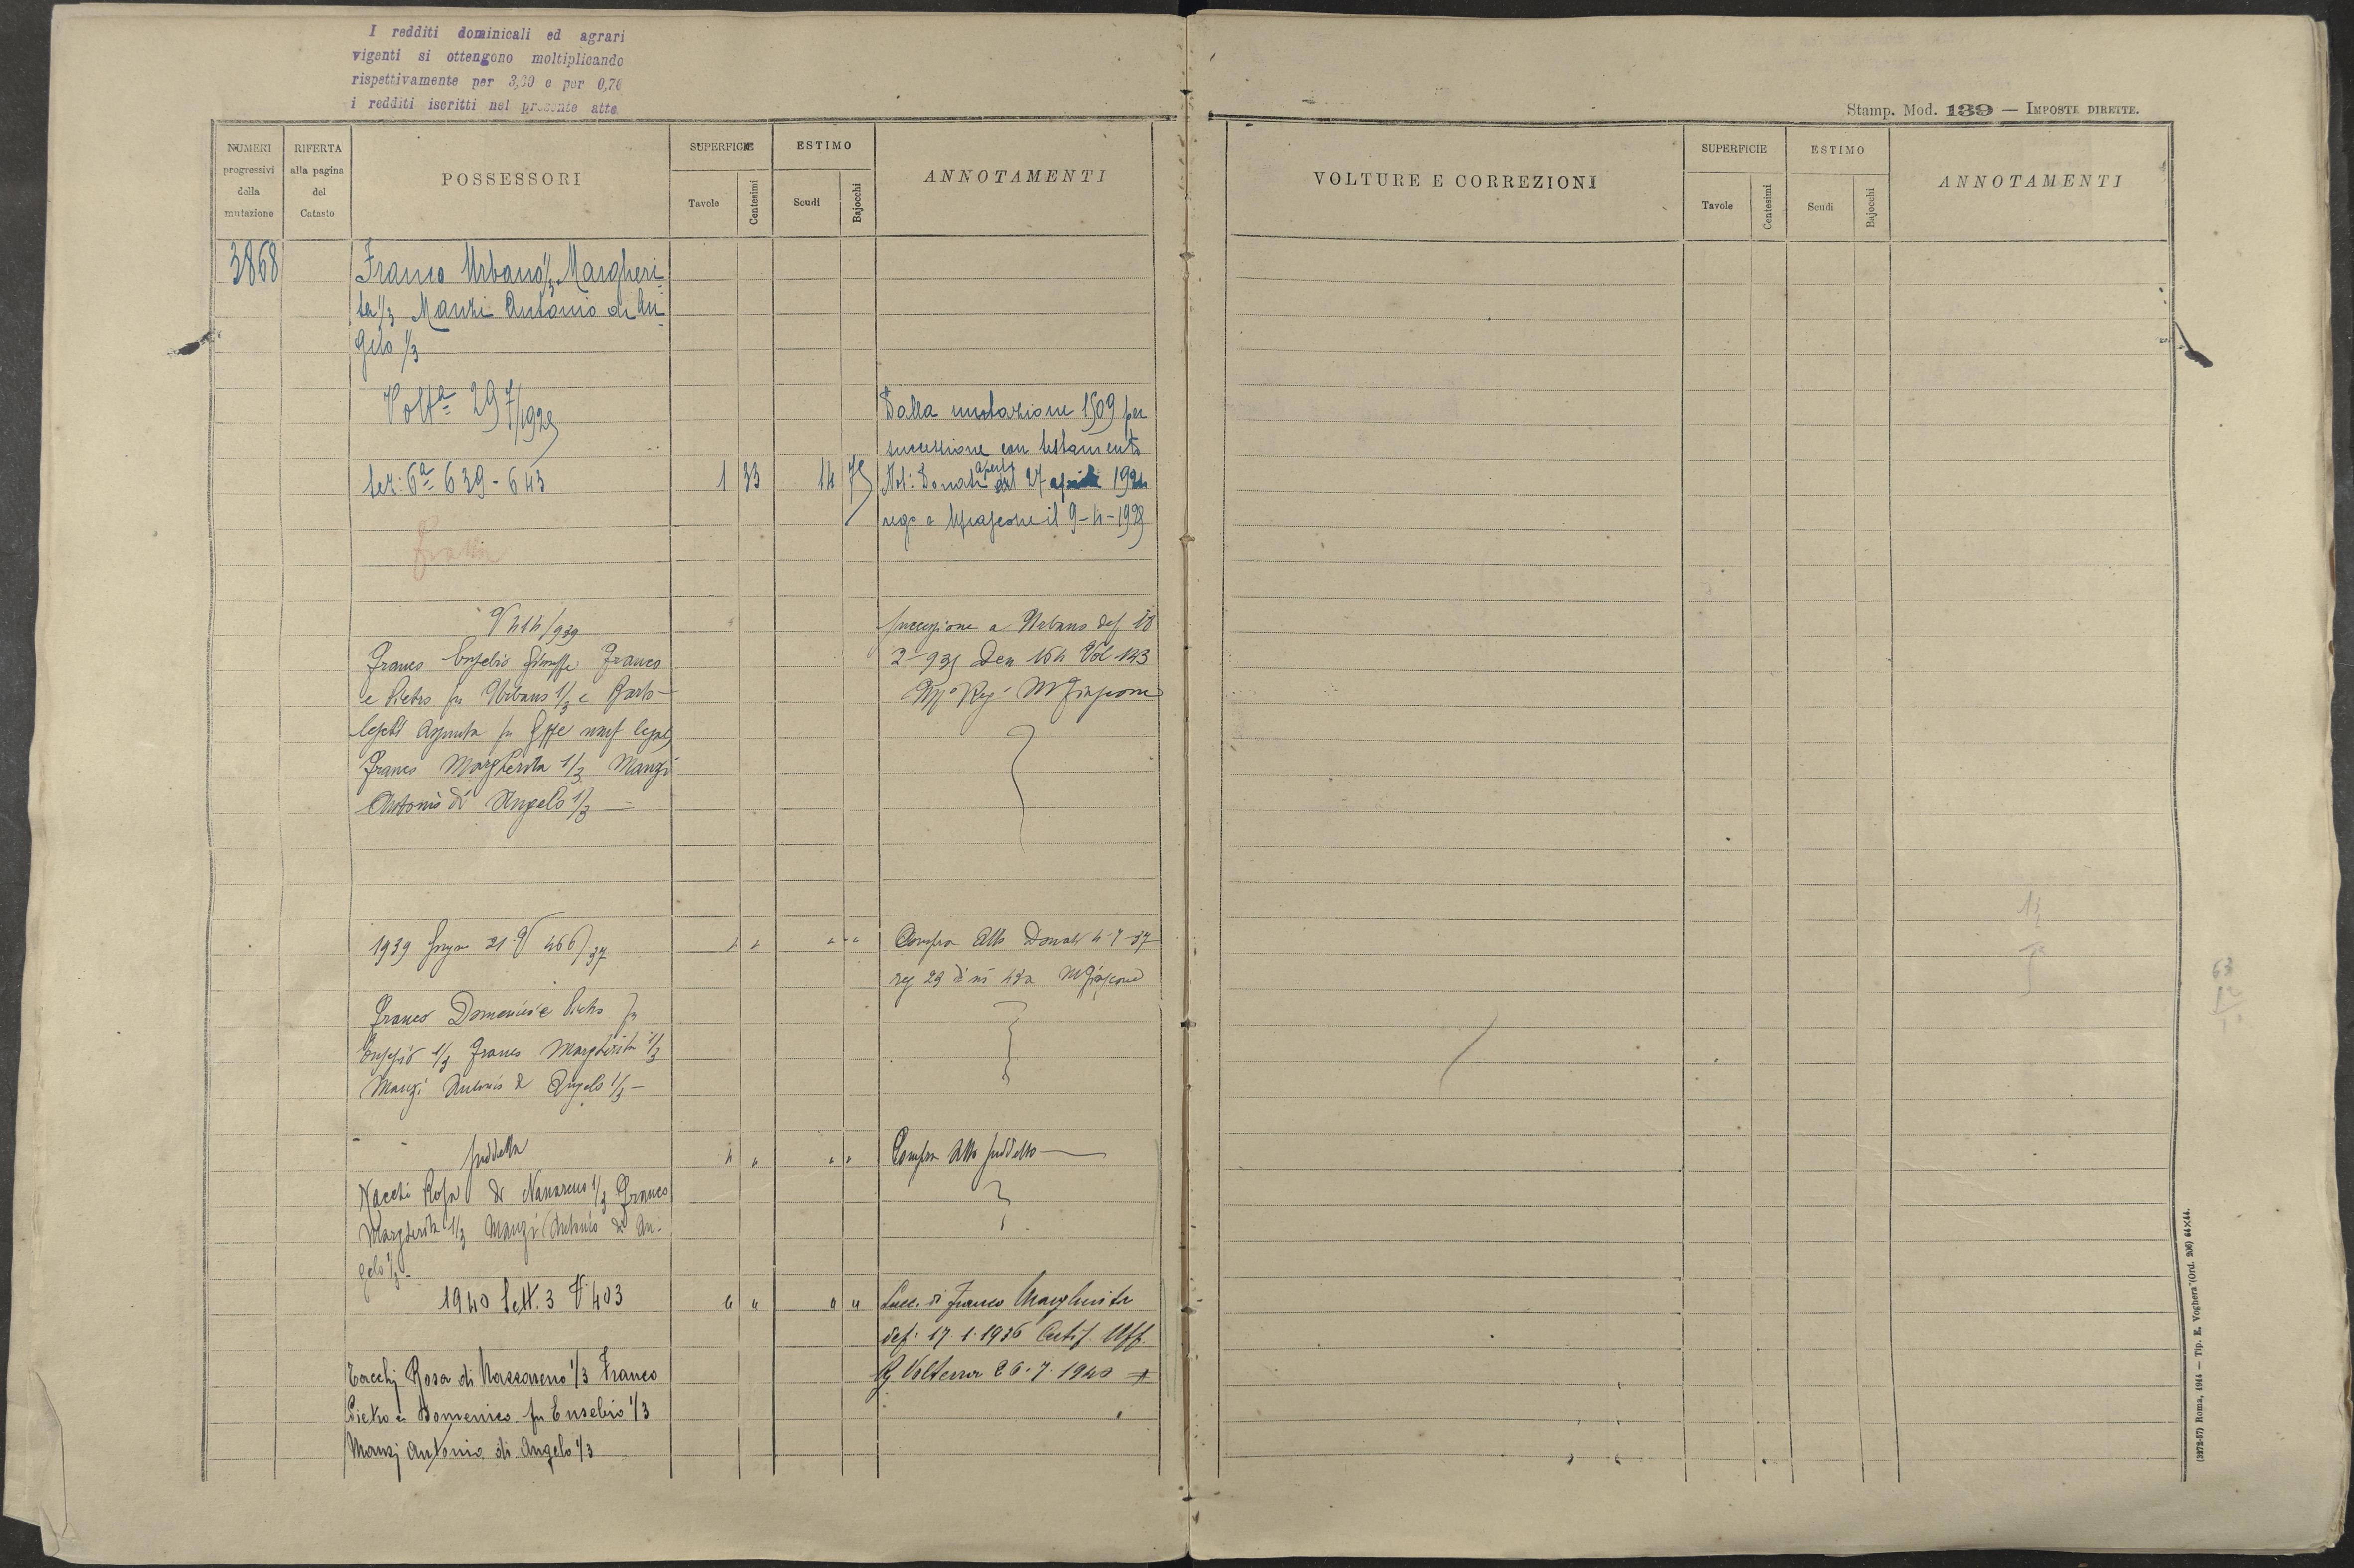 I redditi dominicali ed agrari
vigenti si ottengono moltiplicando
rispettivamente per 3,00 e per 0,70
i redditi iscritti nel presente atto
Stamp. Mod. 139 — IMPOSTE DIRETTE.
NUMERI progressivi della mutazione
RIFERTA alla pagina del Catasto
POSSESSORI
SUPERFICIE
Tavole
Centesimi
ESTIMO
Scudi
Bajocchi
ANNOTAMENTI
VOLTURE E CORREZIONI
SUPERFICIE
Tavole
Centesimi
ESTIMO
Scudi
Bajocchi
ANNOTAMENTI
3868
Franco Urbano 1/3 Margheri
ta 1/3 Manzi Antonio di An
gelo 1/3
Volta 297/1928
Dalla mutazione 1509 per
successione con testamento
Sez: 6a 639 - 643 1 33 14 78
Not: Donati aperto 27 aprile
Fratta
V 414/939
Successione a Urbano def 18
Franco Eusebio Giuseppe Franco
2-935 Den 164 Vol 143
e Pietro fu Urbano 1/3 e Barto-
Uff° Reg° Mfiascone
Assunta fu Gppe usuf legale
Franco Margherita 1/3 Manzi
Antonio di Angelo 1/3 —
1939 Giugno 21 V 466/37 " " " "
Compra Atto Donati 4-7-37
reg 29 d° n°
Mfiascone
Franco Domenico e Pietro fu
Eusebio 1/3 Franco Margherita 1/3
Manzi Antonio di Angelo 1/3 —
" " suddetta " " " "
Compra Atto suddetto —
Rosa di Nazareno 1/3 Franco
Margherita 1/3 Manzi Antonio di An-
gelo 1/3 -
1940 Sett. 3 V 403 " " " "
Succ. di Franco Margherita
def. 17.1.1936 Certif. Uff.
Rg Volterra 26.7.1940
Tacchj Rosa di Nazzareno 1/3 Franco
Pietro e Domenico fu Eusebio 1/3
Manzj Antonio di Angelo 1/3
63
12
(3272-57) Roma, 1914 — Tip. E. Voghera (Ord. 206) 64×44.